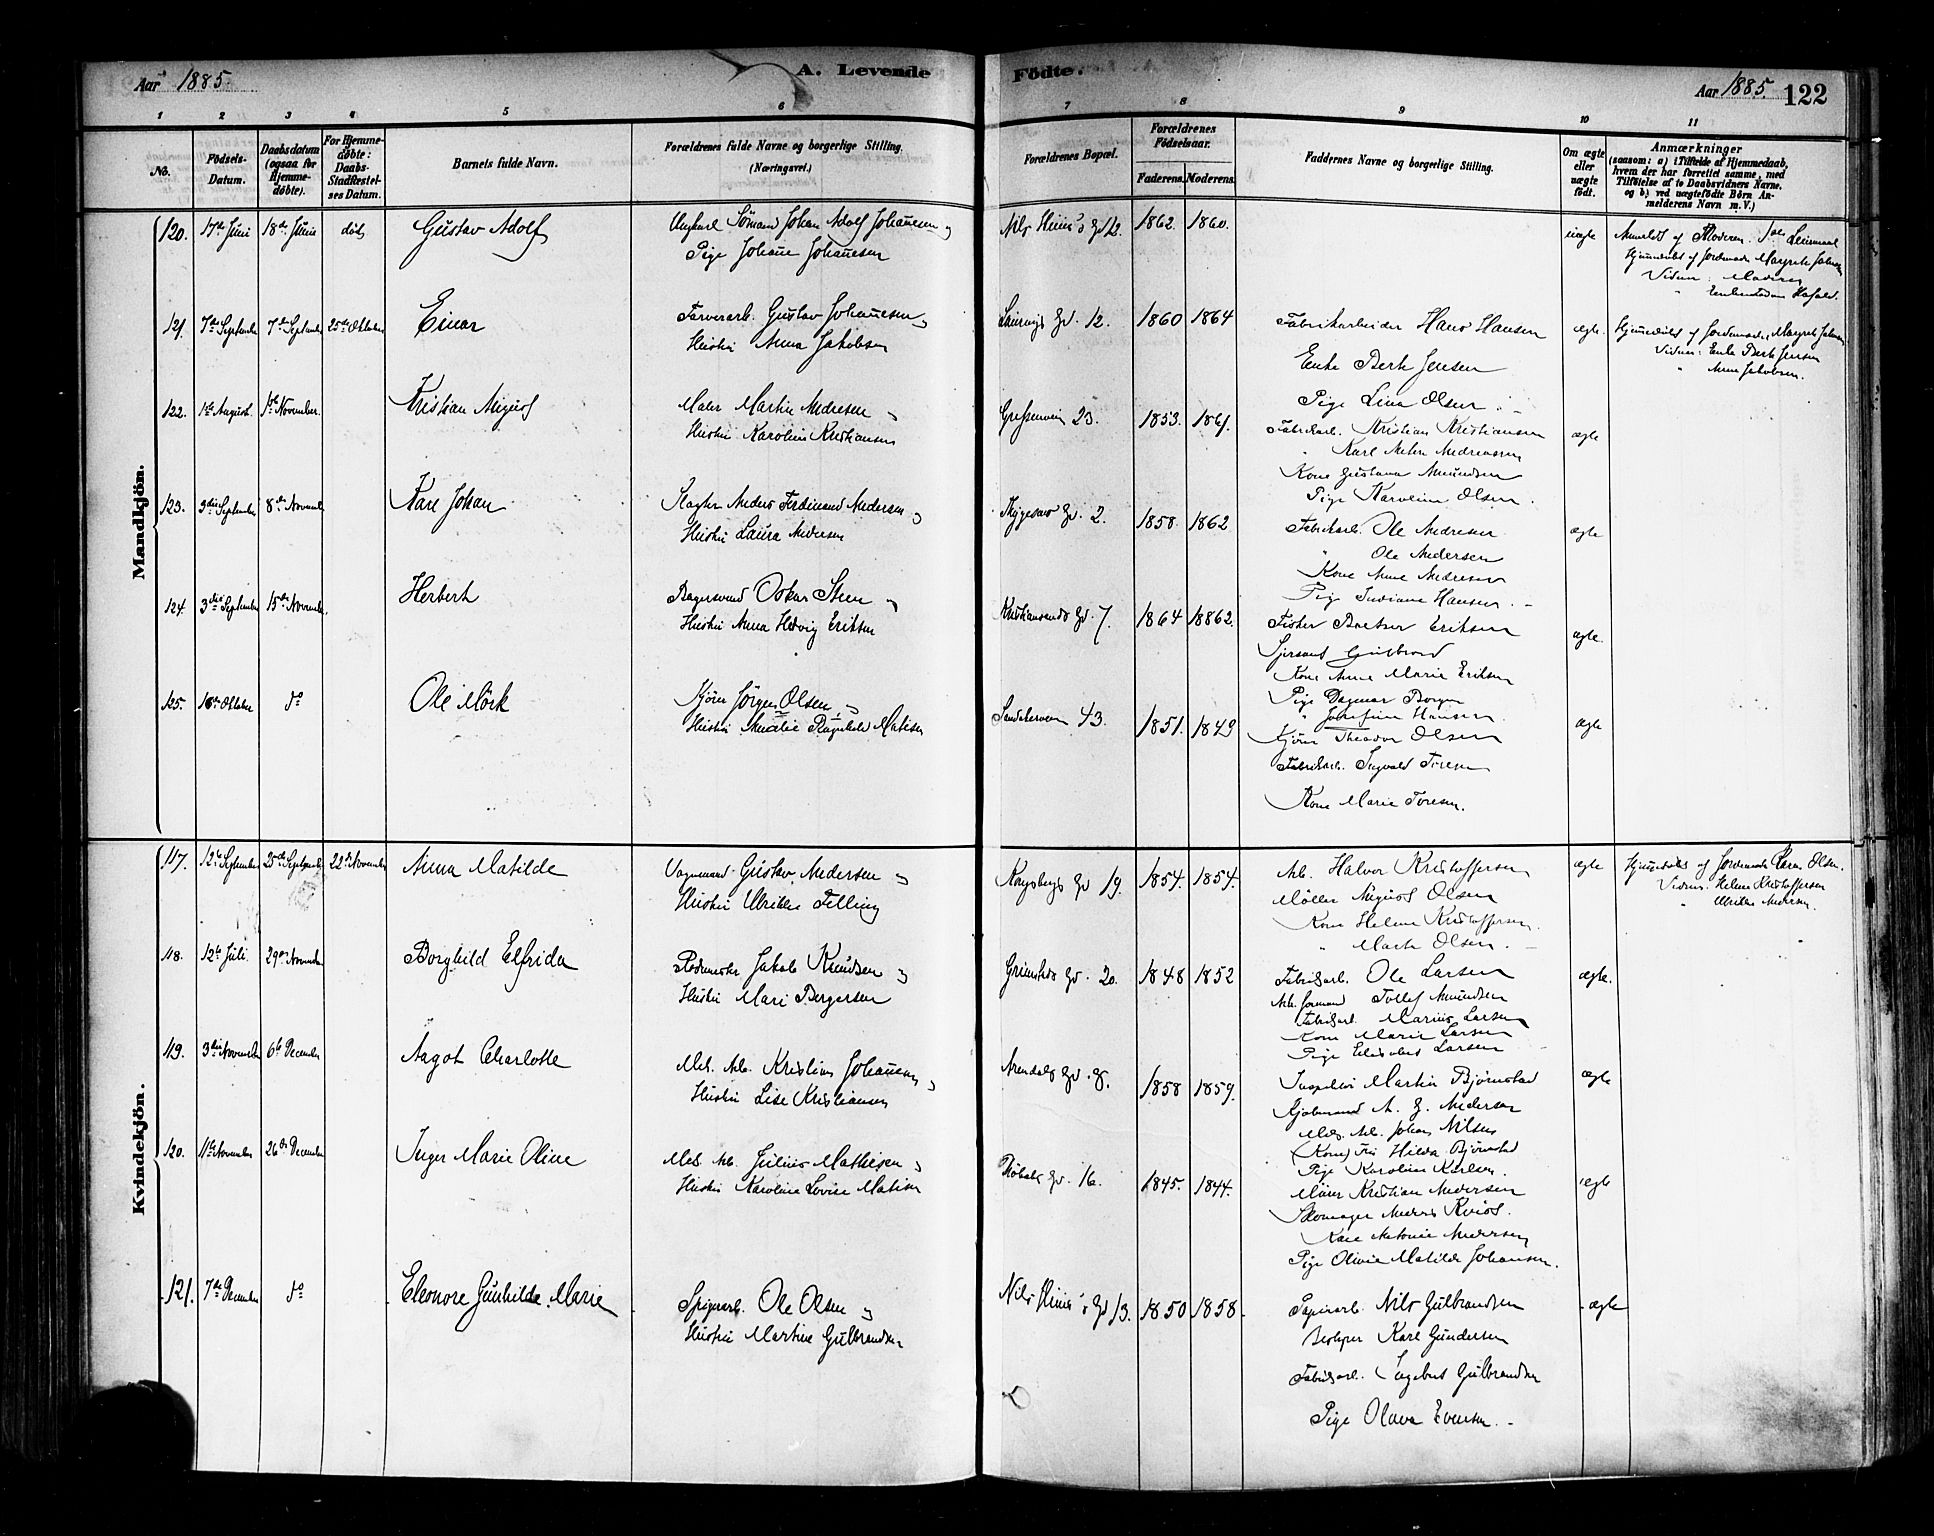 Aar 1885
A. Levende
Fødte.
Aar 1885
122
1 2 3 4 5 6 7 8 9 10 11
No.
Fødsels-Datum.
Daabsdatum (ogsaa for Hjemmedøbte).
For Hjemmedøbte: Daabs-Stadfæstelses Datum.
Barnets fulde Navn.
Forældrenes fulde Navne og borgerlige Stilling. (Næringsvei.)
Forældrenes Bopæl.
Forældrenes Fødselsaar.
Faderens. Moderens.
Faddernes Navne og borgerlige Stilling.
Om ægte eller uægte født.
Anmærkninger
(saasom: a) i Tilfælde af Hjemmedaab, hvem der har forrettet samme, med Tilføielse af to Daabsvidners Navne, og b) ved uægtefødte Børn Anmelderens Navn m. V.)
Mandkjøn.
120. 17de Juni 18de Juni død Gustav Adolf
Ungkarl Sømand Johan Adolf Johansen og
Pige Johanne Johannesen
1862. 1860.
uægte
Anmeldt af Moderen.
121. 7de September 7de September 25de Oktober Einar
Farverarb. Gustav Johannesen og
Hustru Anna Jakobsen
12. 1860 1864
Fabrikarbeider Hans Hansen
Enke Berte Jensen
Pige Lina Olsen
ægte.
Vidner: Enke Berte Jensen
Anna Jakobsen.
122. 1ste August. 1ste November. Kristian August
Maler Martin Andresen og
Hustru Karoline Kristiansen
23. 1853. 1861.
Fabrikarb. Kristian Kristiansen
Karl Anton Andreassen
Kone Gustava Amundsen
Pige Karoline Olsen.
ægte
123. 3die September 8de Novemb. Kare Johan
Slagter Anders Ferdinand Andersen og
Hustru Laura Andersen
Gd. 2. 1858. 1862
Fabrikarb. Ole Andresen
" Ole Andersen
Kone Anne Andresen
Pige Indiana Hansen.
ægte
124. 3die September 15de Novemb. Herbert
Bagersvend Oskar Steen og
Hustru Anna Hedvig Eriksen
Kristiansands Gd. 7. 1864 18862.
Fisker Eriksen
Kone Anne Marie Eriksen
Pige Dagmar Borgen
" Josefine Hansen.
ægte.
125. 16de Oktober do Ole Mörk
Kjører Jörgen Olsen og
Hustru Amalie Ragnhild Matisen
Sandakerveien 43. 1851. 1849
Kjører Theodor Olsen
Fabrikarb. Ingvald Toresen
Kone Marie Toresen.
ægte
Kvindekjøn.
117. 12te September 25de September 22de November Anna Matilde
Vognmand Gustav Andersen og
Hustru Ulrikke Felling
Kongsbergs Gd 19. 1854. 1854.
Arb. Halvor Kristoffersen
Møller August Olsen
Kone Helene Kristoffersen.
" Marte Olsen.
ægte
Hjemmedøbt af Jordemoder Karen Olsen.
Vidner: Helene Kristoffersen
" Ulrikke Andersen.
118. 12te Juli 29de November Borghild Elfrida
Rodemester Jakob Knudsen og
Hustru Mari Bergersen
Grimstads Gd. 20. 1848 1852
Fabrikarb. Ole Larsen
Arb. formand Tollef Amundsen
Fabrikarb. Marius Larsen
Kone Marie Larsen
Pige Elisabet Larsen
ægte.
119. 3die November 6te December Aagot Charlotte
Mek. Arb. Kristian Johansen og
Hustru Lise Kristiansen
Arendals Gd. 8. 1858 1859.
Martin Bjørnstad
Andersen
Mek. Arb. Johan Nilsen
(Kone) Fru Hilda Bjørnstad
Pige Karoline Karlsen.
ægte
120. 11te November 26de December Inger Marie Oline
Mek. Arb. Julius Mathisen og
Hustru Karoline Lovise Matisen
Gd. 16. 1845. 1844.
Murer Kristian Andersen
Skomager Anders
Kone Antonie Andersen
Pige Olivia Matilde Johansen.
ægte
121. 7de December do Eleonore Gunhilde Marie
Spigerarb. Ole Olsen og
Hustru Martine Gulbrandsen
Gd 13. 1850 1858.
Papirarb. Nils Gulbrandsen
Karl Gundersen
Fabrikarb. Ingebret Gulbrandsen
Pige Olava Evensen.
ægte